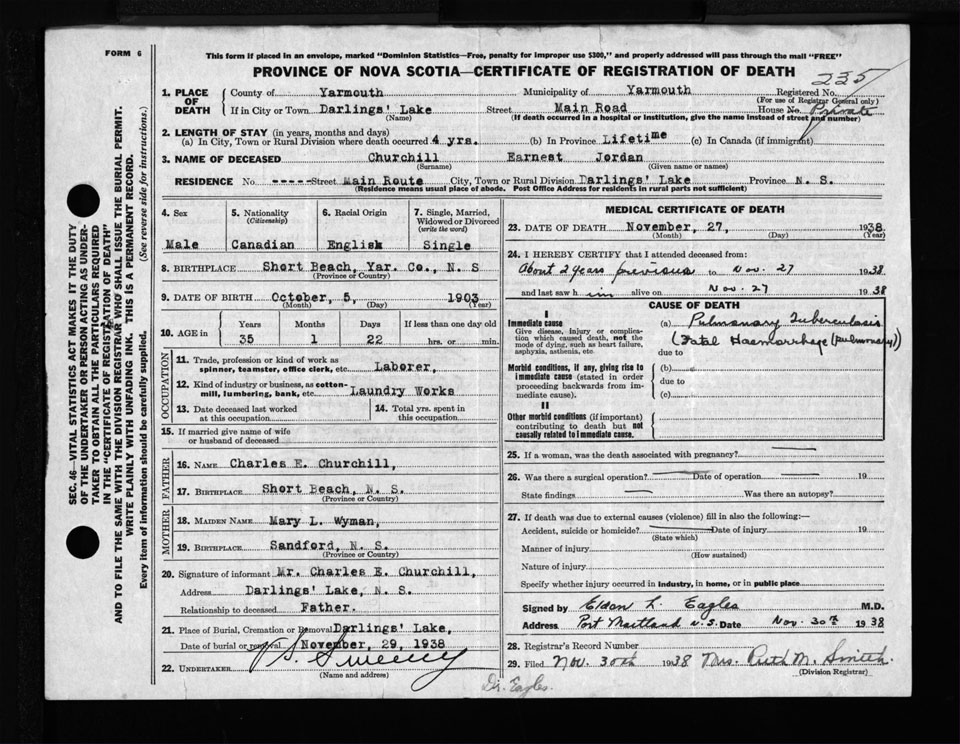 FORM 6
This form if placed in an envelope, marked "Dominion Statistics—Free, penalty for improper use $300," and properly addressed will pass through the mail "FREE"
PROVINCE OF NOVA SCOTIA—CERTIFICATE OF REGISTRATION OF DEATH
235
SEC. 46—VITAL STATISTICS ACT MAKES IT THE DUTY
OF THE UNDERTAKER OR PERSON ACTING AS UNDER-
TAKER TO OBTAIN ALL THE PARTICULARS REQUIRED
IN THE "CERTIFICATE OF REGISTRATION OF DEATH"
AND TO FILE THE SAME WITH THE DIVISION REGISTRAR WHO SHALL ISSUE THE BURIAL PERMIT.
WRITE PLAINLY WITH UNFADING INK. THIS IS A PERMANENT RECORD.
Every item of information should be carefully supplied. (See reverse side for instructions.)
1. PLACE OF DEATH County of Yarmouth Municipality of Yarmouth Registered No.
(For use of Registrar General only)
If in City or Town Darlings' Lake Street Main Road House No. Private
(Name) (If death occurred in a hospital or institution, give the name instead of street and number)
2. LENGTH OF STAY (in years, months and days)
(a) In City, Town or Rural Division where death occurred 4 yrs. (b) In Province Lifetime (c) In Canada (if immigrant)
3. NAME OF DECEASED Churchill Earnest Jordan
(Surname) (Given name or names)
RESIDENCE No ----- Street Main Route City, Town or Rural Division Darlings' Lake Province N. S.
(Residence means usual place of abode. Post Office Address for residents in rural parts not sufficient)
4. Sex 5. Nationality (Citizenship) 6. Racial Origin 7. Single, Married, Widowed or Divorced (write the word)
Male Canadian English Single
8. BIRTHPLACE Short Beach, Yar. Co., N. S
(Province or Country)
9. DATE OF BIRTH October, 5, 1903
(Month) (Day) (Year)
10. AGE in Years Months Days If less than one day old
35 1 22 hrs. or min.
OCCUPATION
11. Trade, profession or kind of work as
spinner, teamster, office clerk, etc. Laborer,
12. Kind of industry or business, as cotton-
mill, lumbering, bank, etc. Laundry Works
13. Date deceased last worked at this occupation 14. Total yrs. spent in this occupation
15. If married give name of wife
or husband of deceased
FATHER
16. NAME Charles E. Churchill,
17. BIRTHPLACE Short Beach, N. S.
(Province or Country)
MOTHER
18. MAIDEN NAME Mary L. Wyman,
19. BIRTHPLACE Sandford, N. S.
(Province or Country)
20. Signature of informant Mr. Charles E. Churchill,
Address Darlings' Lake, N. S.
Relationship to deceased Father.
21. Place of Burial, Cremation or Removal Darlings' Lake,
Date of burial or removal November, 29, 1938
22. UNDERTAKER V. S. Sweeny
(Name and address)
Dr. Eagles.
MEDICAL CERTIFICATE OF DEATH
23. DATE OF DEATH November, 27, 1938.
(Month) (Day) (Year)
24. I HEREBY CERTIFY that I attended deceased from:
About 2 years previous to Nov. 27 1938
and last saw him alive on Nov. 27 1938
CAUSE OF DEATH
I
Immediate cause
Give disease, injury or complica-
tion which caused death, not the
mode of dying, such as heart failure,
asphyxia, asthenia, etc.
(a) Pulmonary Tuberculosis
(Fatal Haemorrhage (pulmonary))
due to
Morbid conditions, if any, giving rise to
immediate cause (stated in order
proceeding backwards from im-
mediate cause).
(b)
due to
(c)
II
Other morbid conditions (if important)
contributing to death but not
causally related to immediate cause.
25. If a woman, was the death associated with pregnancy?
26. Was there a surgical operation? Date of operation 19
State findings Was there an autopsy?
27. If death was due to external causes (violence) fill in also the following:—
Accident, suicide or homicide? Date of injury 19
(State which)
Manner of injury
(How sustained)
Nature of injury
Specify whether injury occurred in industry, in home, or in public place
Signed by Eldon L. Eagles M.D.
Address Port Maitland N.S. Date Nov. 30th 1938
28. Registrar's Record Number
29. Filed Nov. 30th 1938 Mrs. Ruth M. Smith.
(Division Registrar)